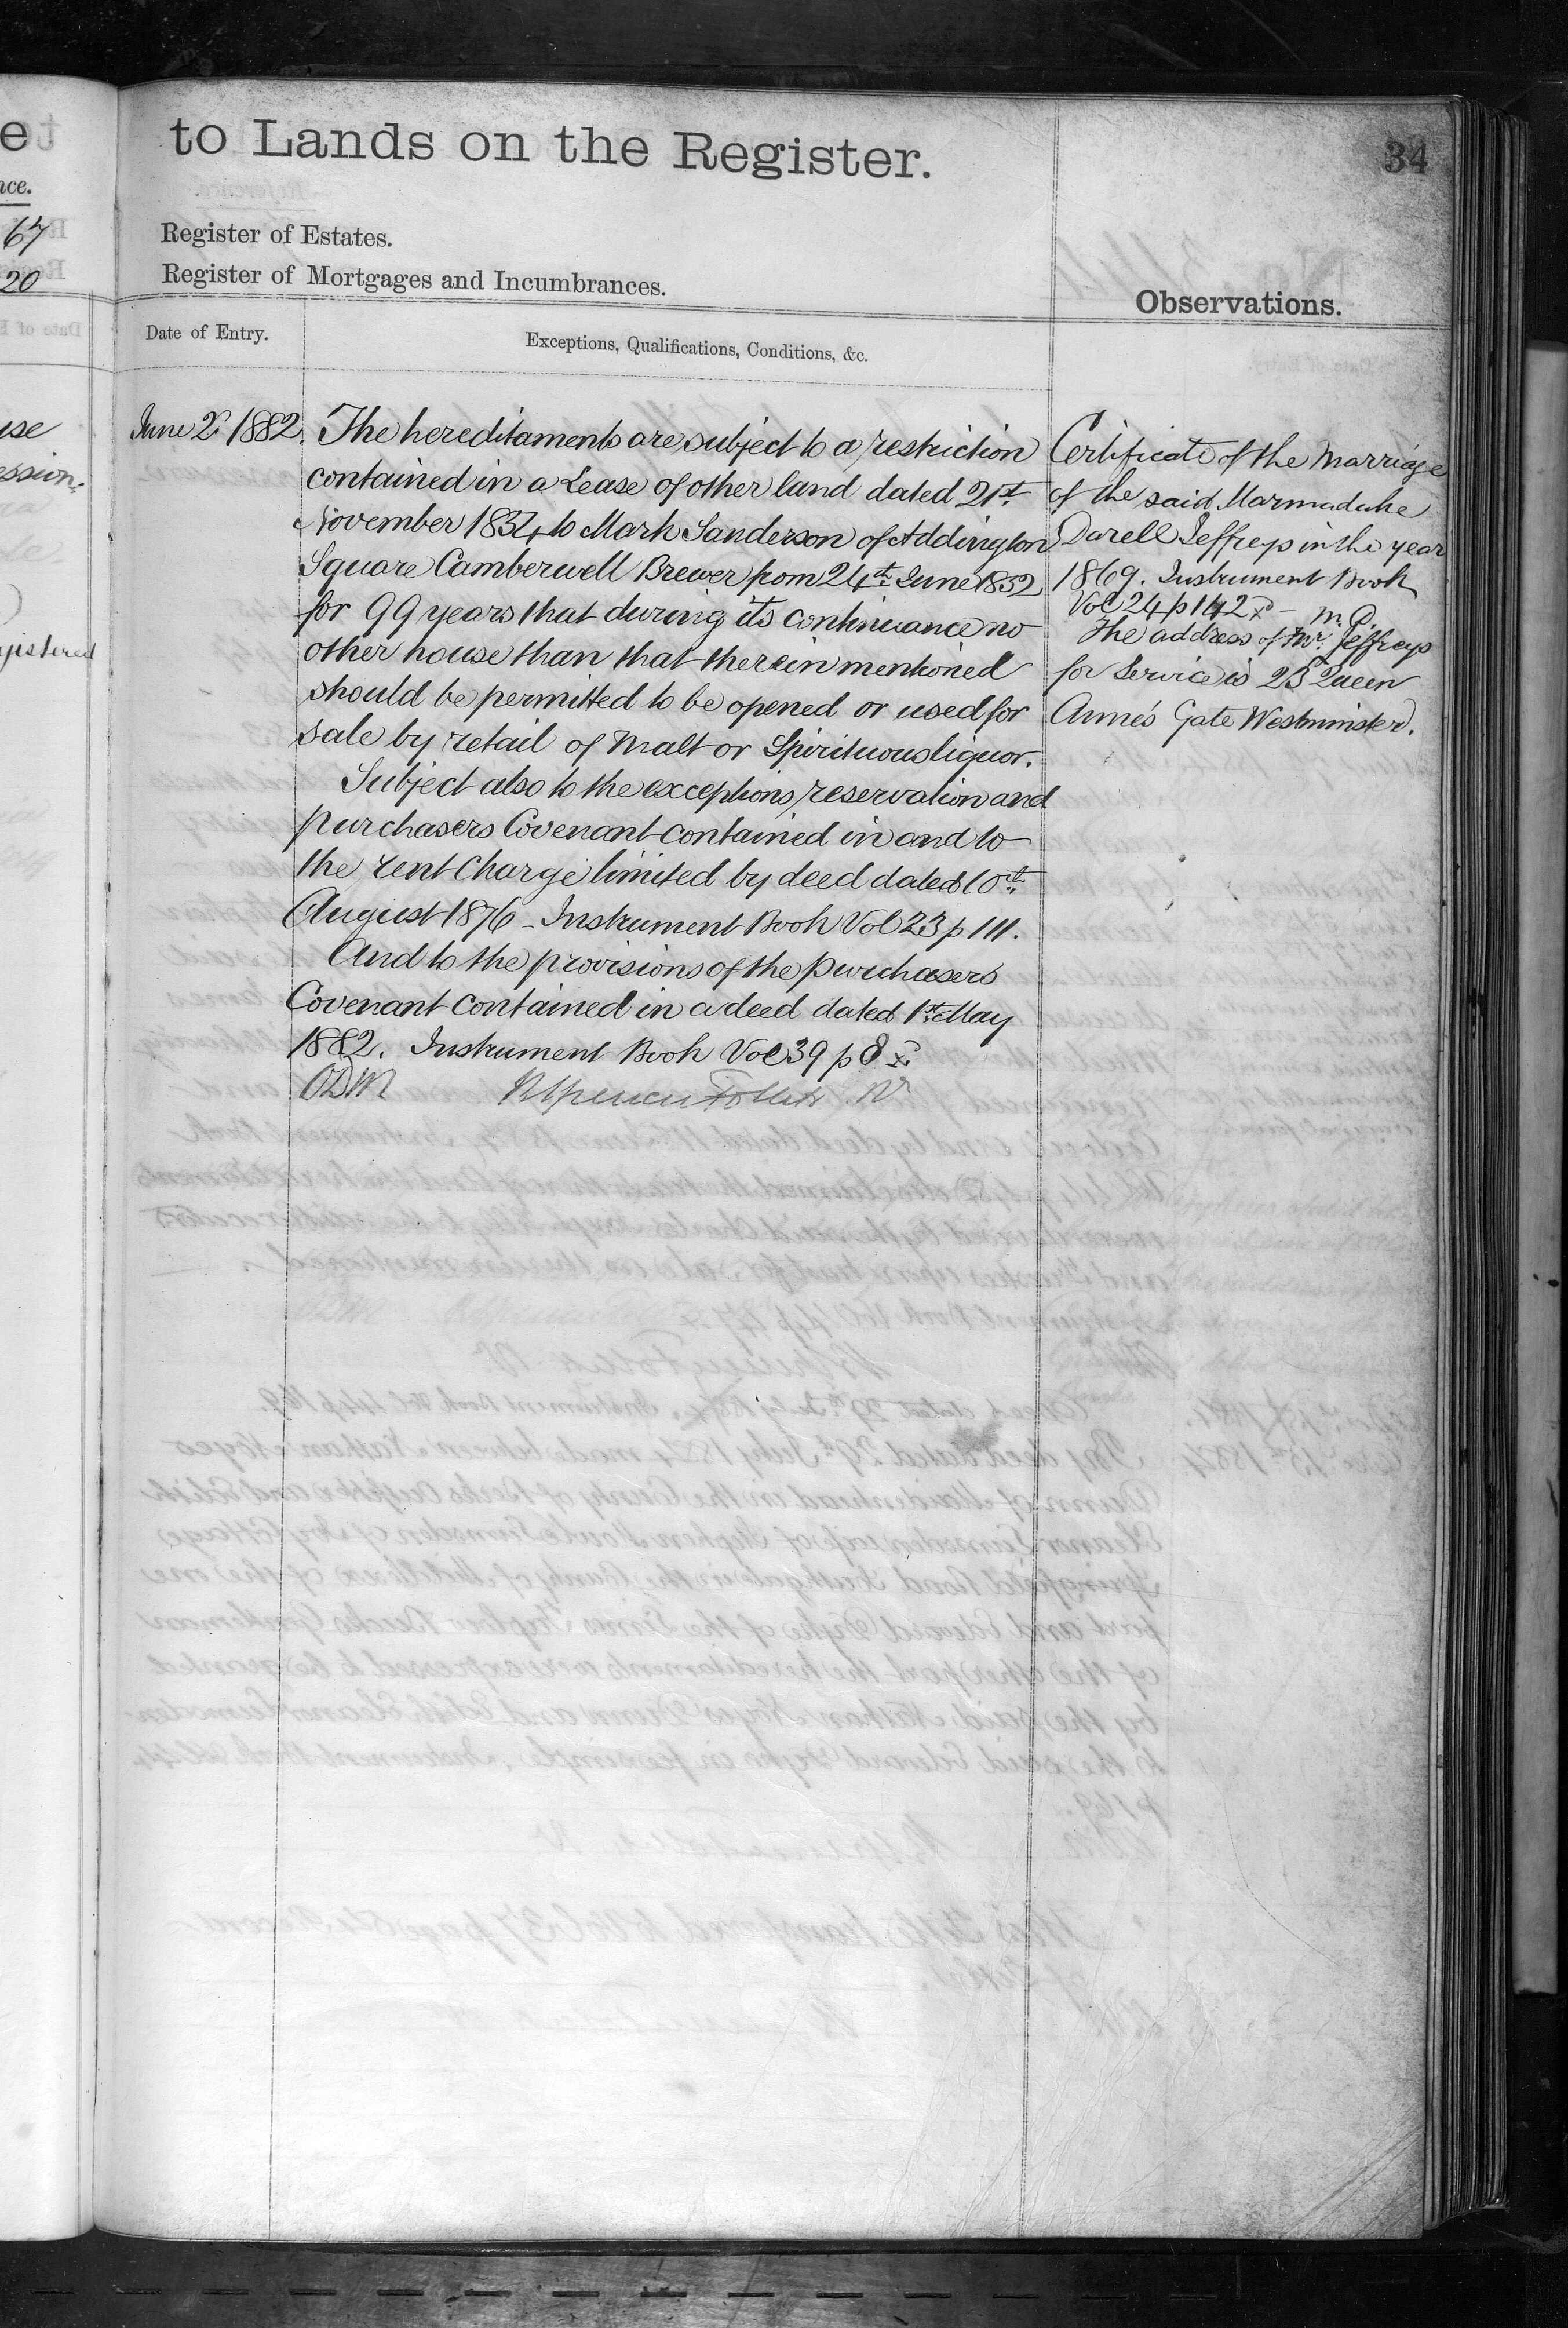 to Lands on the Register.
34
Register of Estates.
Register of Mortgages and Incumbrances.
Observations.
Date of Entry.
Exceptions, Qualifications, Conditions, &c.
June 2. 1882.
The hereditaments are subject to a restriction
contained in a Lease of other land dated 21st
November 1834 to Mark Sanderson of Addington
Square Camberwell Brewer from 24th June 1832
for 99 years that during its continuance no
other house than that therein mentioned
should be permitted to be opened or used for
sale by retail of Malt or Spirituous liquor.
Subject also to the exceptions reservation and
purchasers Covenant contained in and to
the rent Charge limited by deed dated 10th
August 1876 - Instrument Book Vol 23 p 111.
And to the provisions of the purchasers
Covenant contained in a deed dated 1st May
1882. Instrument Book Vol 39 p 8
Certificate of the Marriage
of the said Marmaduke
Darell Jeffreys in the year
1869. Instrument Book
Vol 24 p 142
M.D.
The address of Mr. Jeffreys
for Service is 28 Queen
Anne's Gate Westminster.
67
20